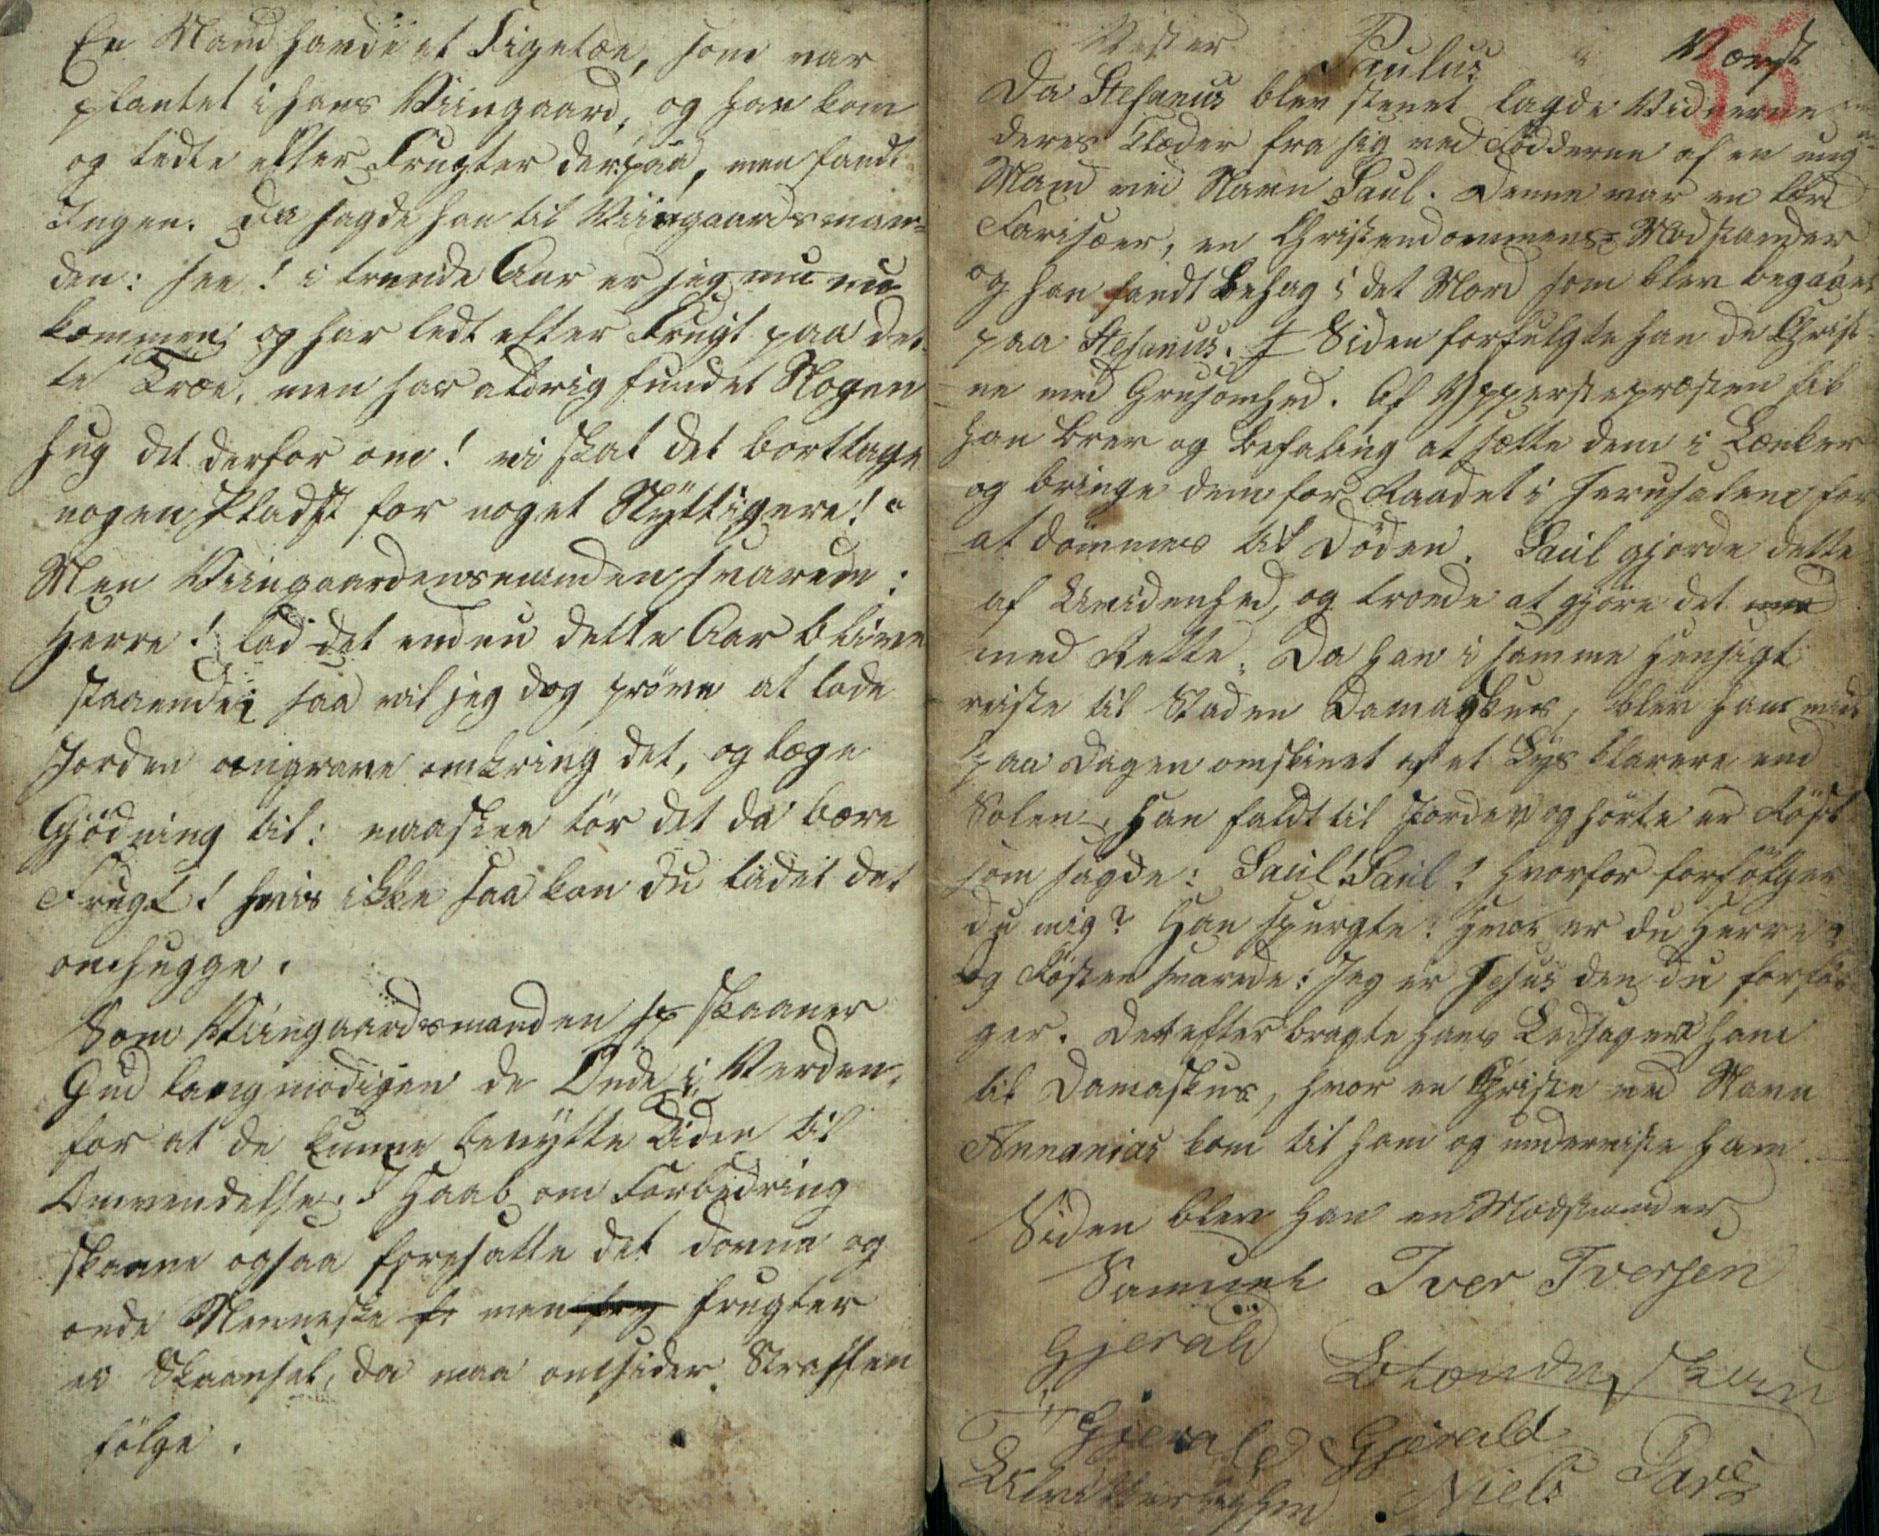 En Mand havde et Figetræ, som var
plantet i hans Viingaard, og han kom
og ledte efter Frugter derpaa, men fandt
Ingen. Da sagde han til Viingaardsman-
den: see! i trende Aar er jeg nu nu
kommen og har ledt efter Frugt paa det-
te Træe, men har aldrig fundet Nogen
hug det derfor om! vi skal det borttage
nogen Pladst for noget Nyttigere!
Men Viingaardensmanden svarede:
Herre! lad det endnu dette Aar blive
staaende; saa vil jeg dog pröve at lade
Jorden omgrave omkring det, og læge
Gjödning til: maaskee tör det da bære
Frugt! hvis ikke saa kan du ladet det
omhugge.
Som Viingaardsmanden sp skaaner
Gud langmodigen de Onde i Verden,
for at de kunne benytte Tiden til
Omvendelse. I Haab om Forbedring
skaane ogsaa foresatte det dovne og
onde Menneske fr men frugter
ei Skaansel, da maa omsider Straffen
fölge.
Vester Paulus
Da Stefanus blev stenet lagde Vidnerne
deres Klæder fra sig ved Födderne af en ung
Mand ved Navn Saul. Denne var en lærd
Farisæer, en Christendommens Modstander
og han fandt Behag i det Mord som blev begaaet
paa Stefanus. I Siden forfulgte han de Christ-
ne med Grusomhed. Af Ypperstepræsten fik
han Brev og Befaling at sætte dem i Lænker
og bringe dem for Raadet i Jerusalem for
at dömmes til Döden. Saul gjorde dette
af Uvidenhed, og troede at gjöre det med
med Rette. Da han i samme Hensigt
reiste til Staden Damaskus, blev han midt
paa Dagen omskinet af et Lys klarere end
Solen. Han faldt til Jorden og hörte en Röst
som sagde: Saul! Saul! hvorfor forfölger
du mig? Han spurgte: hvo er du Herre?
og Rösten svarede: Jeg er Jesus den du forföl-
ger. Derefter bragte hans Ledsagere ham
til Damaskus, hvor en Christen ved Navn
Annanias kom til ham og underviste ham.
Siden blev han en Modstander
Samuel Iver Iversen
Gjerald
Gjerald Gjerald
Niels Lars